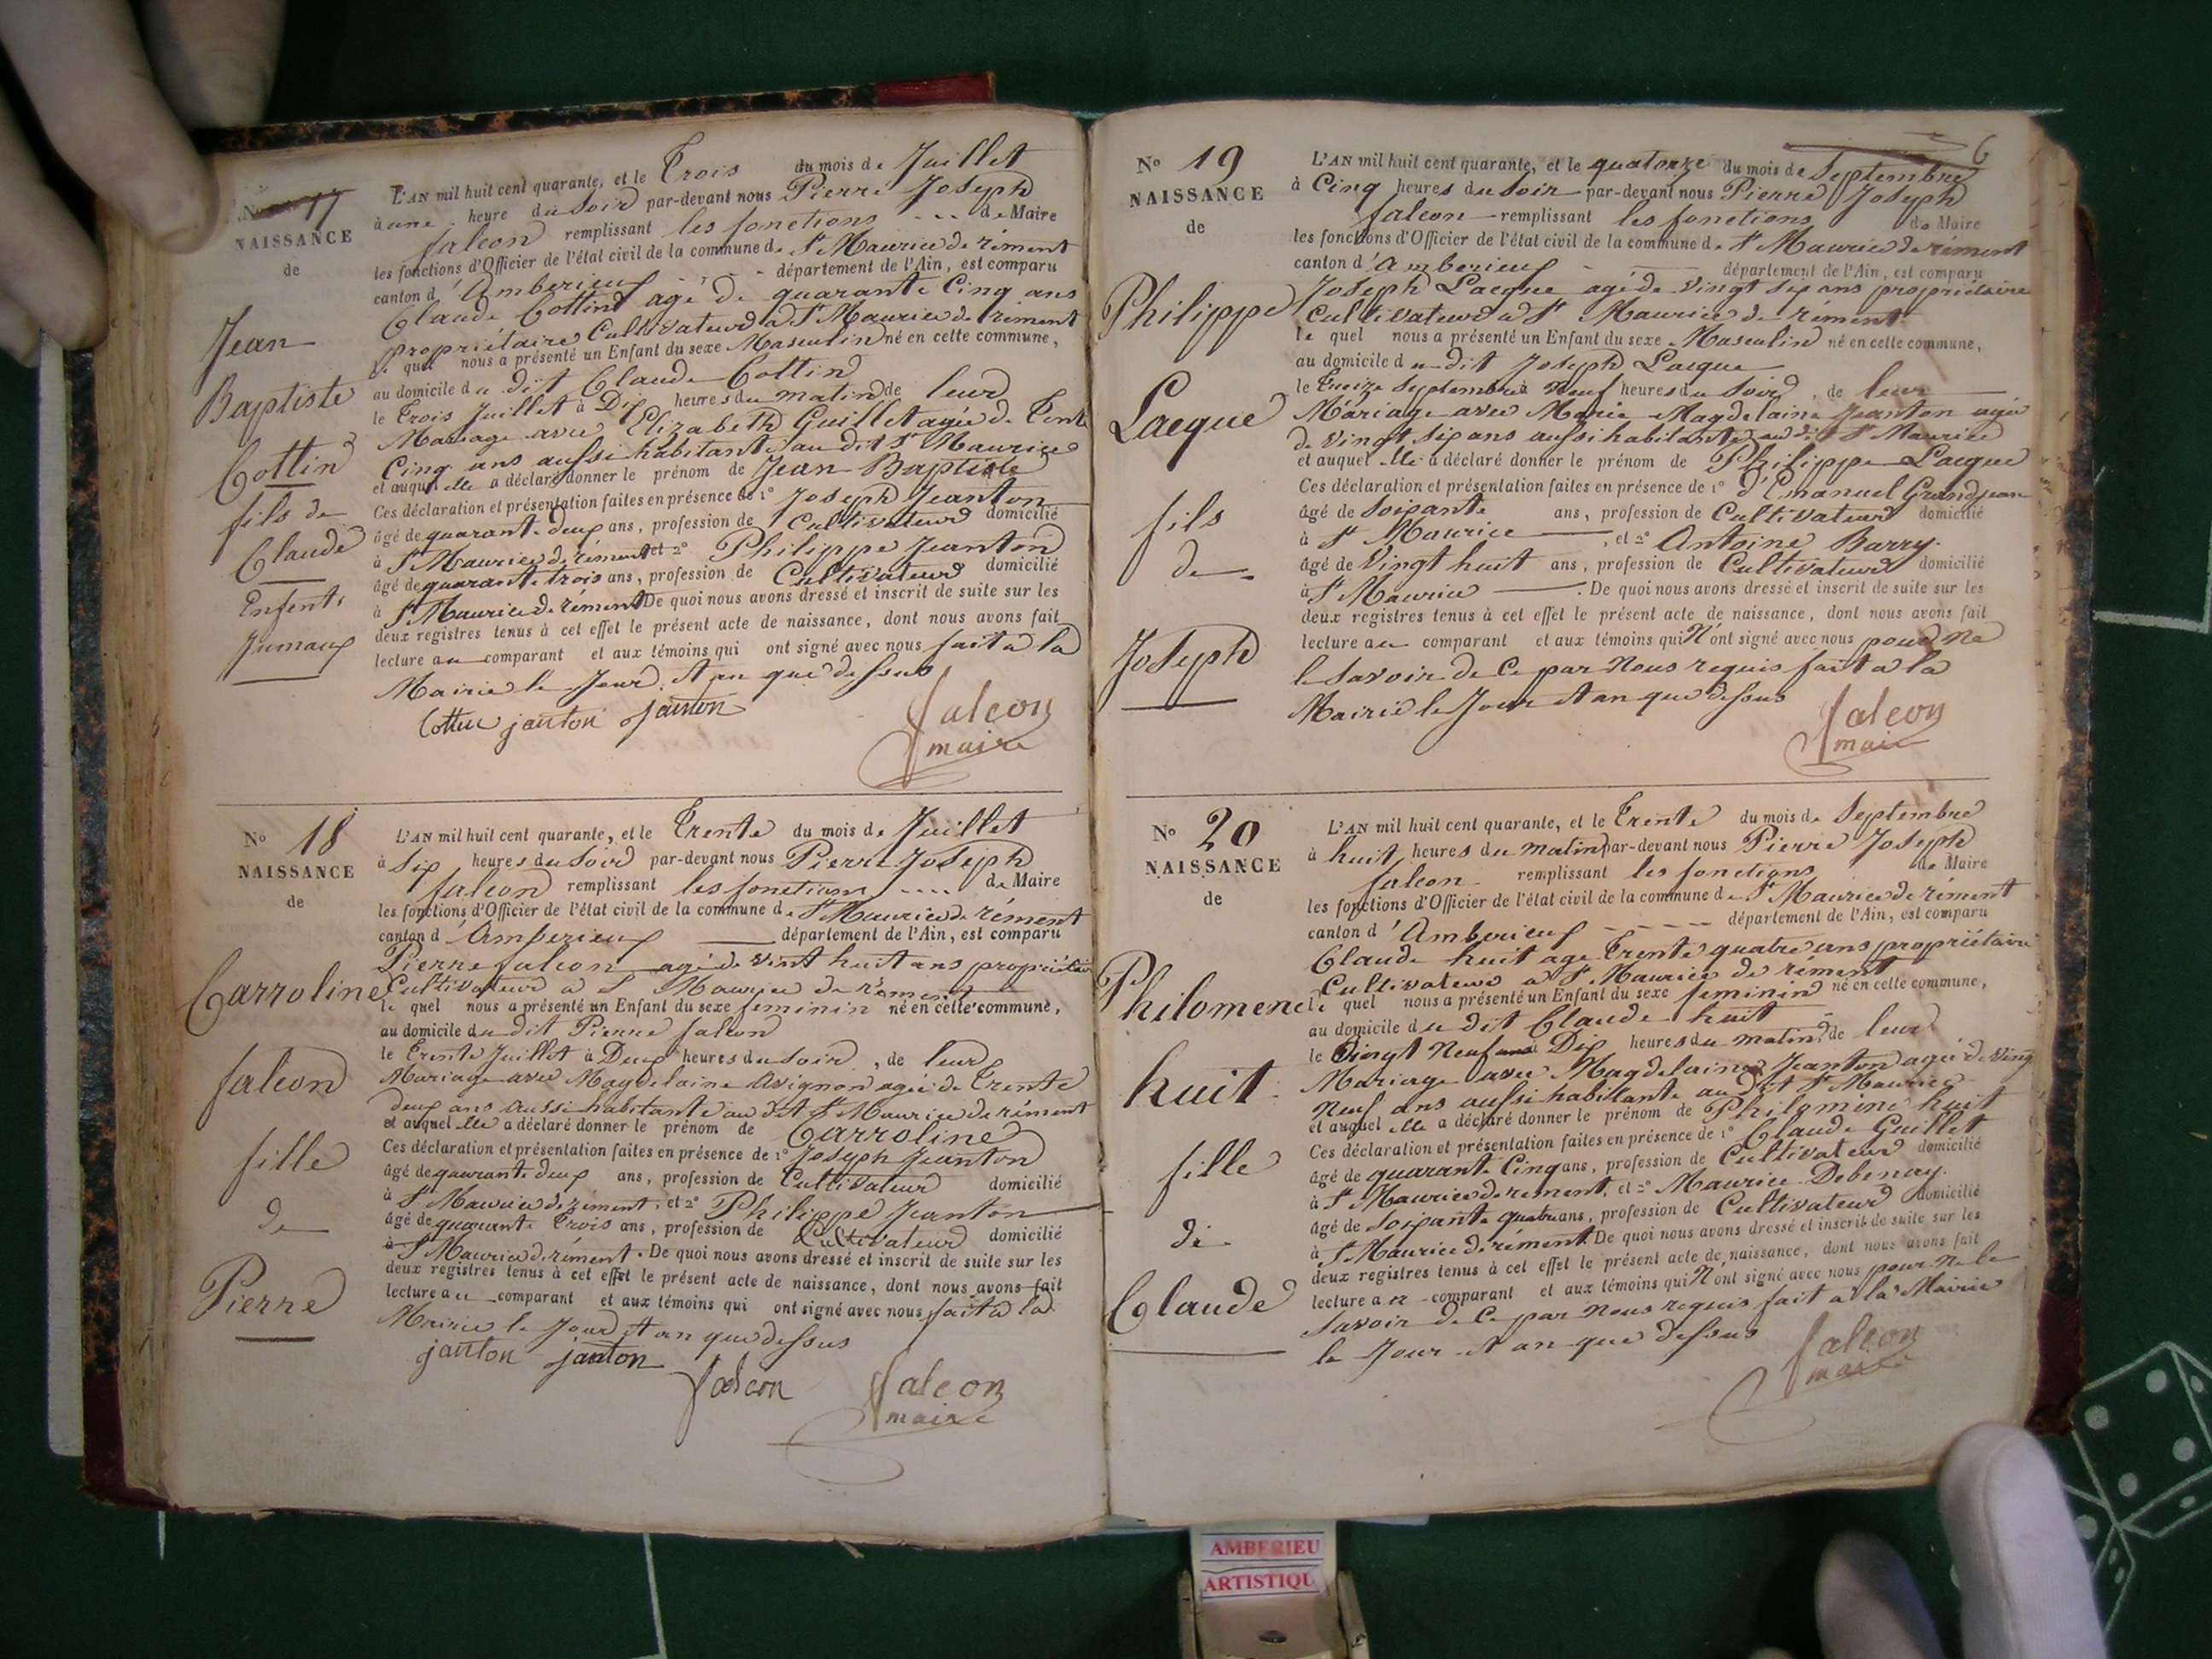 No 17
NAISSANCE
de
Jean
Baptiste
Cottin
fils de
Claude
Enfents
Jumaux
L'AN mil huit cent quarante, et le Trois du mois de Juillet
à une heure du Soir par-devant nous Pierre Joseph
falcon remplissant les fonctions de Maire
les fonctions d'Officier de l'état civil de la commune de St Maurice de rément
canton d'Amberieux département de l'Ain, est comparu
Claude Cottin agé de quarante Cinq ans
propriétaire Cultivateur a St Maurice de rément
le quel nous a présenté un Enfant du sexe Masculin né en cette commune,
au domicile du dit Claude Cottin
le Trois Juillet à Dix heures du matin de leur
Mariage avec Elizabeth Guillet agée de Trente
Cinq ans aussi habitante au dit St Maurice
et auquel elle a déclaré donner le prénom de Jean Baptiste
Ces déclaration et présentation faites en présence de 1° Joseph Jeanton
âgé de quarante deux ans, profession de Cultivateur domicilié
à St Maurice de rément et 2° Philippe Jeanton
âgé de quarante trois ans, profession de Cultivateur domicilié
à St Maurice de rément De quoi nous avons dressé et inscrit de suite sur les
deux registres tenus à cet effet le présent acte de naissance, dont nous avons fait
lecture au comparant et aux témoins qui ont signé avec nous fait a la
Mairie le Jour et an que dessus
Cottin janton janton
falcon
maire
No 18
NAISSANCE
de
Carroline
falcon
fille
de
Pierre
L'AN mil huit cent quarante, et le Trente du mois de Juillet
à Six heures du Soir par-devant nous Pierre Joseph
falcon remplissant les fonctions de Maire
les fonctions d'Officier de l'état civil de la commune de St Maurice de rément
canton d'Amberieux département de l'Ain, est comparu
Pierre falcon agé de vint huit ans propriétaire
Cultivateur a St Maurice de rément
le quel nous a présenté un Enfant du sexe feminin né en cette commune,
au domicile du dit Pierre falcon
le Trente Juillet à Deux heures du soir, de leur
Mariage avec Magdelaine Avignon agée de Trente
deux ans aussi habitante au dit St Maurice de rément
et auquel elle a déclaré donner le prénom de Carroline
Ces déclaration et présentation faites en présence de 1° Joseph Jeanton
âgé de quarante deux ans, profession de Cultivateur domicilié
à St Maurice de rément, et 2° Philippe Jeanton
âgé de quarante Trois ans, profession de Cultivateur domicilié
à St Maurice de rément. De quoi nous avons dressé et inscrit de suite sur les
deux registres tenus à cet effet le présent acte de naissance, dont nous avons fait
lecture au comparant et aux témoins qui ont signé avec nous fait a la
Mairie le Jour et an que dessus
janton janton
falcon
falcon
maire
6
No 19
NAISSANCE
de
Philippe
Lacque
fils
de
Joseph
L'AN mil huit cent quarante, et le quatorze du mois de Septembre
à Cinq heures du soir par-devant nous Pierre Joseph
falcon remplissant les fonctions de Maire
les fonctions d'Officier de l'état civil de la commune de St Maurice de rément
canton d'Amberieux département de l'Ain, est comparu
Joseph Lacque agé de vingt six ans propriétaire
Cultivateur a St Maurice de rément
le quel nous a présenté un Enfant du sexe Masculin né en cette commune,
au domicile du dit Joseph Lacque
le Treize Septembre à neuf heures du Soir, de leur
Mariage avec Marie Magdelaine Jeanton agée
de vingt six ans aussi habitante au dit St Maurice
et auquel elle a déclaré donner le prénom de Philippe Lacque
Ces déclaration et présentation faites en présence de 1° d'Emanuel Grandjean
âgé de Soixante ans, profession de Cultivateur domicilié
à St Maurice, et 2° Antoine Barry
âgé de Vingt huit ans, profession de Cultivateur domicilié
à St Maurice. De quoi nous avons dressé et inscrit de suite sur les
deux registres tenus à cet effet le présent acte de naissance, dont nous avons fait
lecture au comparant et aux témoins qui N'ont signé avec nous pour ne
le savoir de Ce par Nous requis fait a la
Mairie le Jour et an que dessus
falcon
maire
No 20
NAISSANCE
de
Philomene
huit
fille
de
Claude
L'AN mil huit cent quarante, et le Trente du mois de Septembre
à huit heures du matin par-devant nous Pierre Joseph
falcon remplissant les fonctions de Maire
les fonctions d'Officier de l'état civil de la commune de St Maurice de rément
canton d'Amberieux département de l'Ain, est comparu
Claude huit age Trente quatre ans propriétaire
Cultivateur a St Maurice de rément
le quel nous a présenté un Enfant du sexe feminin né en cette commune,
au domicile du dit Claude huit
le Vingt Neuf Dix heures du matin, de leur
Mariage avec Magdelaine Jeanton agée de Ving
Neuf ans aussi habittante au dit St Maurice
et auquel elle a déclaré donner le prénom de Philomine huit
Ces déclaration et présentation faites en présence de 1° Claude Guillet
âgé de quarante Cinq ans, profession de Cultivateur domicilié
à St Maurice de rement, et 2° Maurice Debenay
âgé de Soixante quatre ans, profession de Cultivateur domicilié
à St Maurice de rément De quoi nous avons dressé et inscrit de suite sur les
deux registres tenus à cet effet le présent acte de naissance, dont nous avons fait
lecture au comparant et aux témoins qui N'ont signé avec nous pour Ne le
Savoir de Ce par Nous requis fait a la Mairie
le Jour et an que dessus
falcon
maire
AMBERIEU
ARTISTIQU